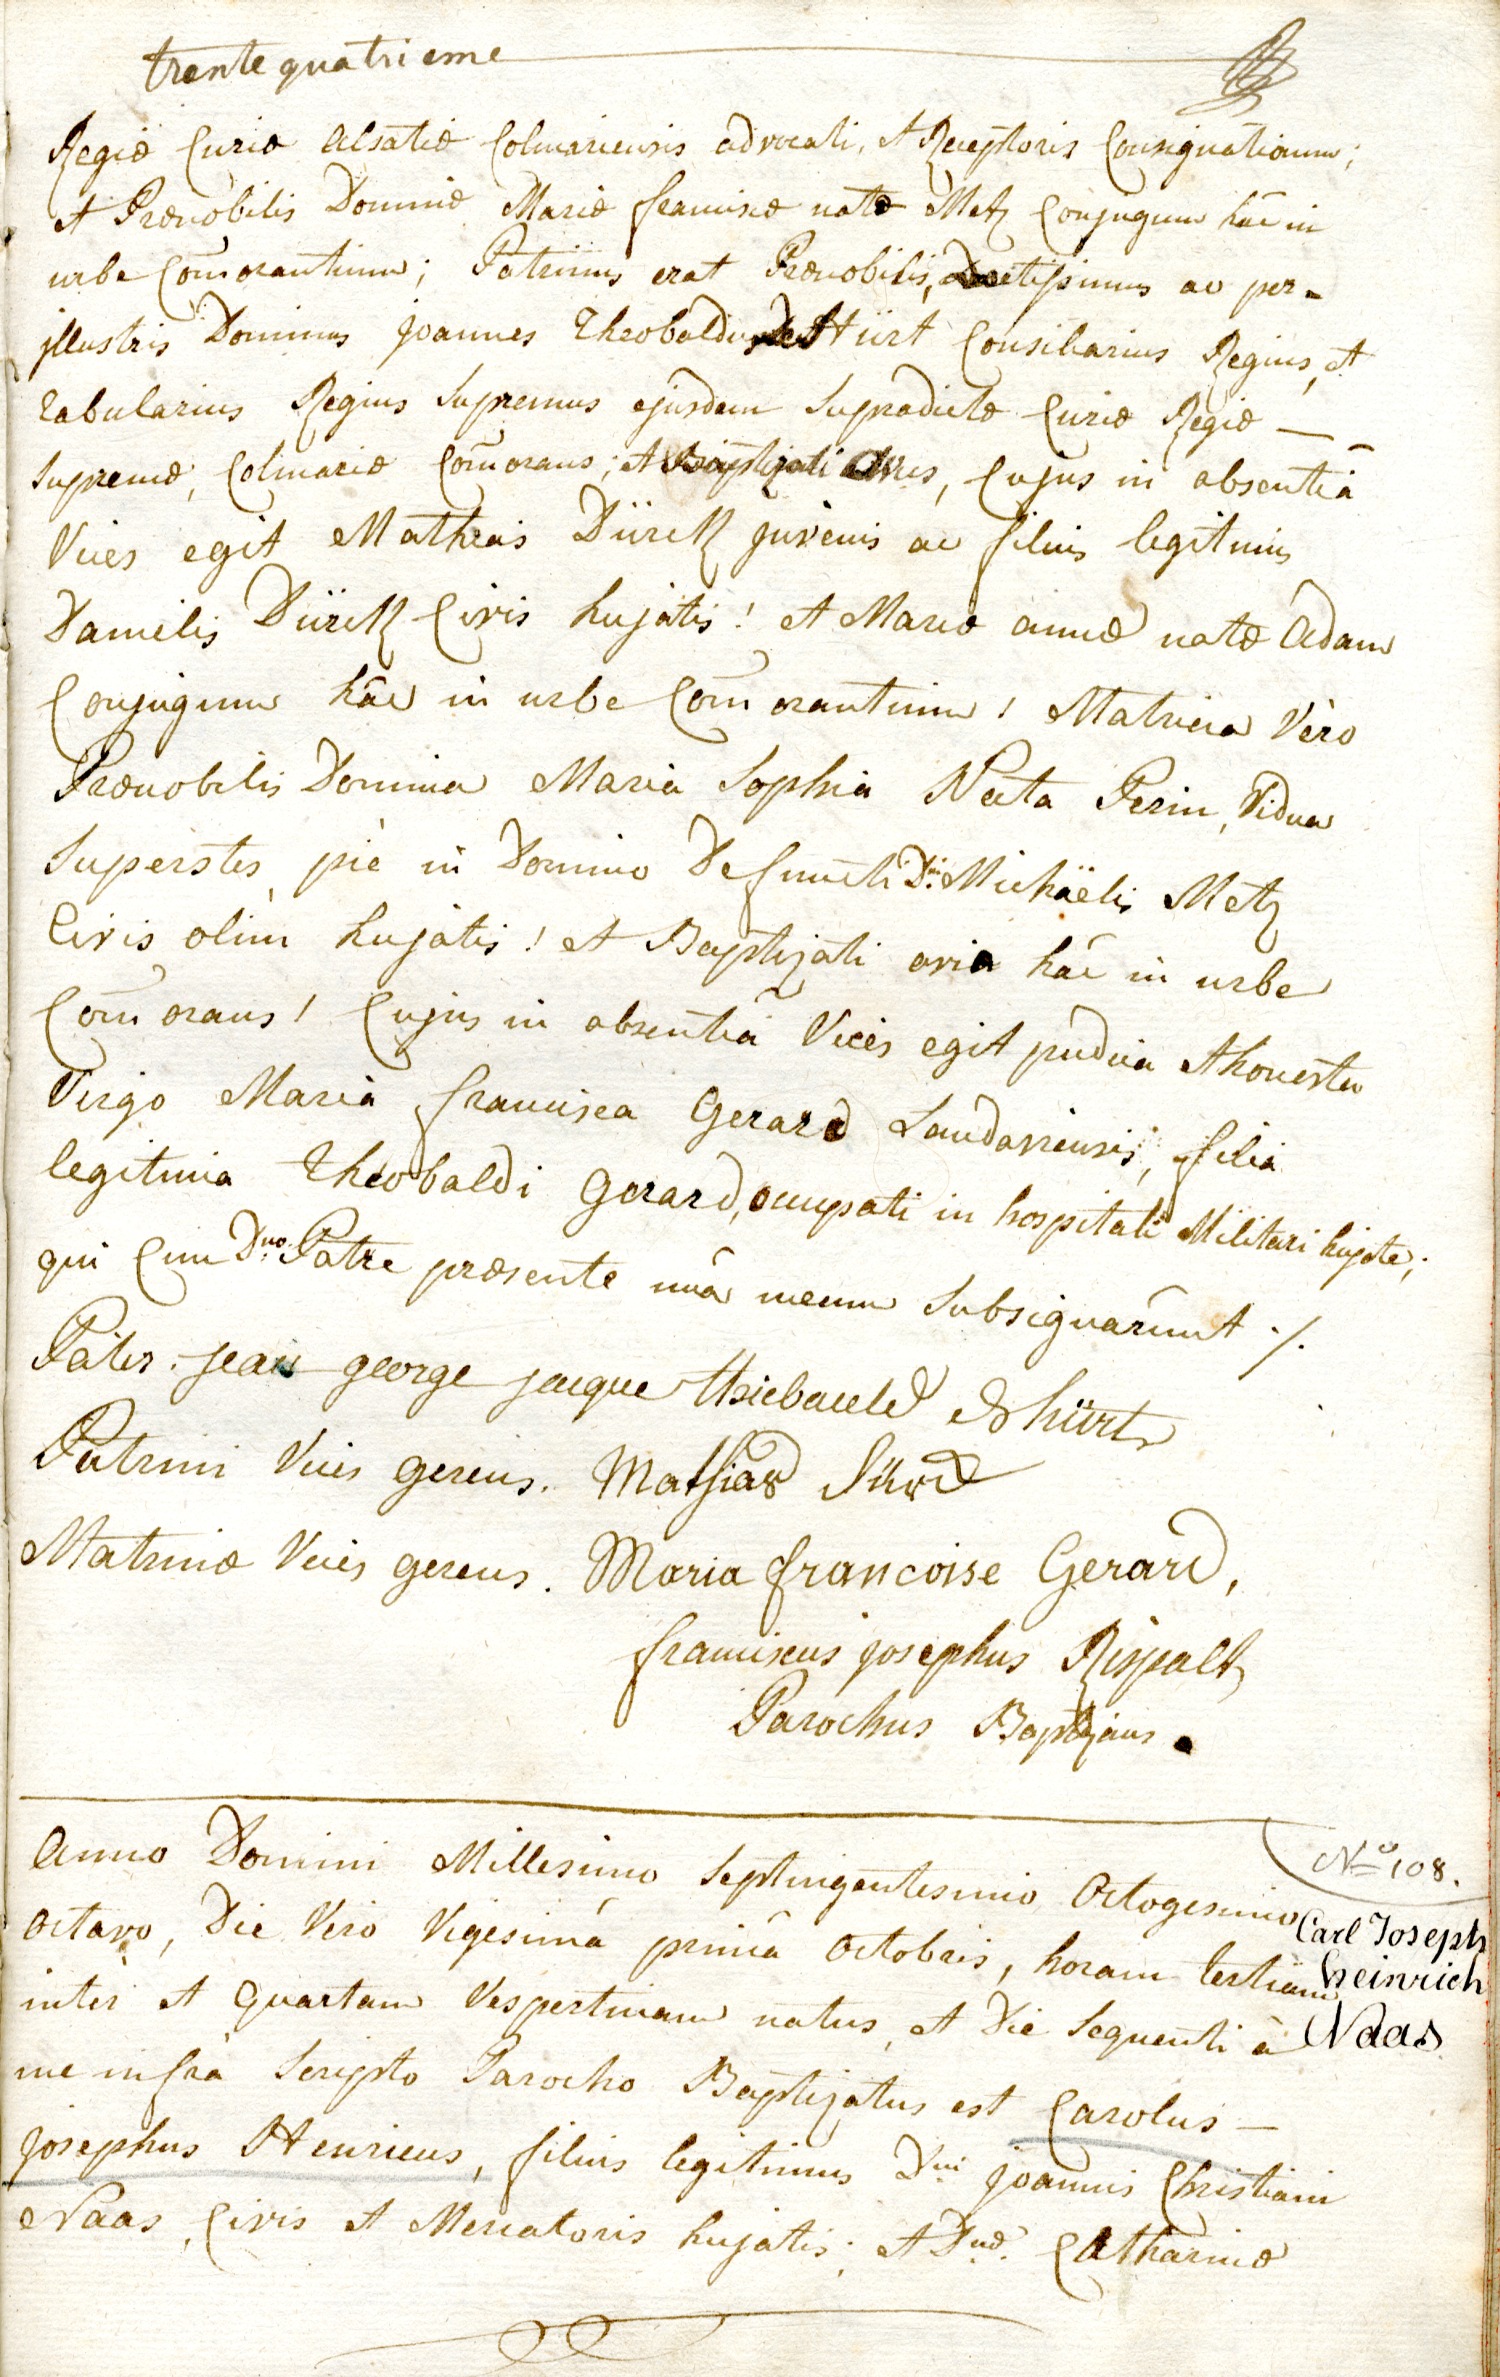 trente quatrieme
Regiæ Curiæ Alsatiæ Colmariensis advocati, et Receptoris Consignationum;
et Prænobilis Dominiæ Mariæ franciscæ natæ Metz Conjugum hâc in
urbe Com̃orantium; Patrinus erat Prænobilis, Doctissimus ac per-
jllustris Dominus joannes Theobaldus de Hürt Consiliarius Regius, et
Tabularius Regius Supremus ejusdem Supradictæ Curiæ Regiæ —
Supremæ, Colmariæ Com̃orans; et Baptizati Avus, Cujus in absentiâ
Vices egit Matheas Dürck juvenis ac filius legitimus
Danielis Dürck Civis hujatis! et Mariæ annæ natæ Adam
Conjugum hâc in urbe Com̃orantium! Matrina Vèro
Prænobilis Domina Maria Sophia Nata Perin, Vidua
Superstes piè in Domino Defuncti Dni: Michäelis Metz
Civis olim hujatis! et Baptizati avia hâc in urbe
Com̃orans! Cujus in absentiâ Vices egit pudica et honesta
Virgo Maria francisca Gerard Landaviensis, filia
legitima Theobaldi Gerard, occupati in hospitali Militari hujate;
qui Cum Dno: Patre præsente unâ mecum Subsignarûnt ·/.
Pater. jean george jacque thiebaeld d hürt
Patrini Vices gerens. Mathias Dürck
Matrinæ Vices gerens. Maria francoise Gerard,
franciscus josephus Rispalt
Parochus Baptizans.
Nº 108.
Anno Domini Millesimo Septingentesimo Octogesimo
Carl Joseph
octavo, Die Vero Vigesimâ primâ Octobris, horam tertiam
Heinrich
inter et Quartam Vespertinam natus, et Die Sequenti à
Naas
me infrà Scripto Parocho Baptizatus est Carolus —
josephus Henricus, filius legitimus Dni joannis Christiani
Naas, Civis et Mercatoris hujatis; et Dnæ. Catharinæ